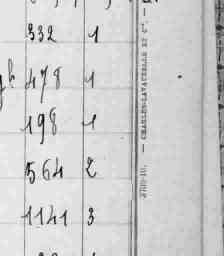 332 1
478 1
198 1
564 2
1141 3
— CHARLES-LAVAUZELLE ET Cie. —